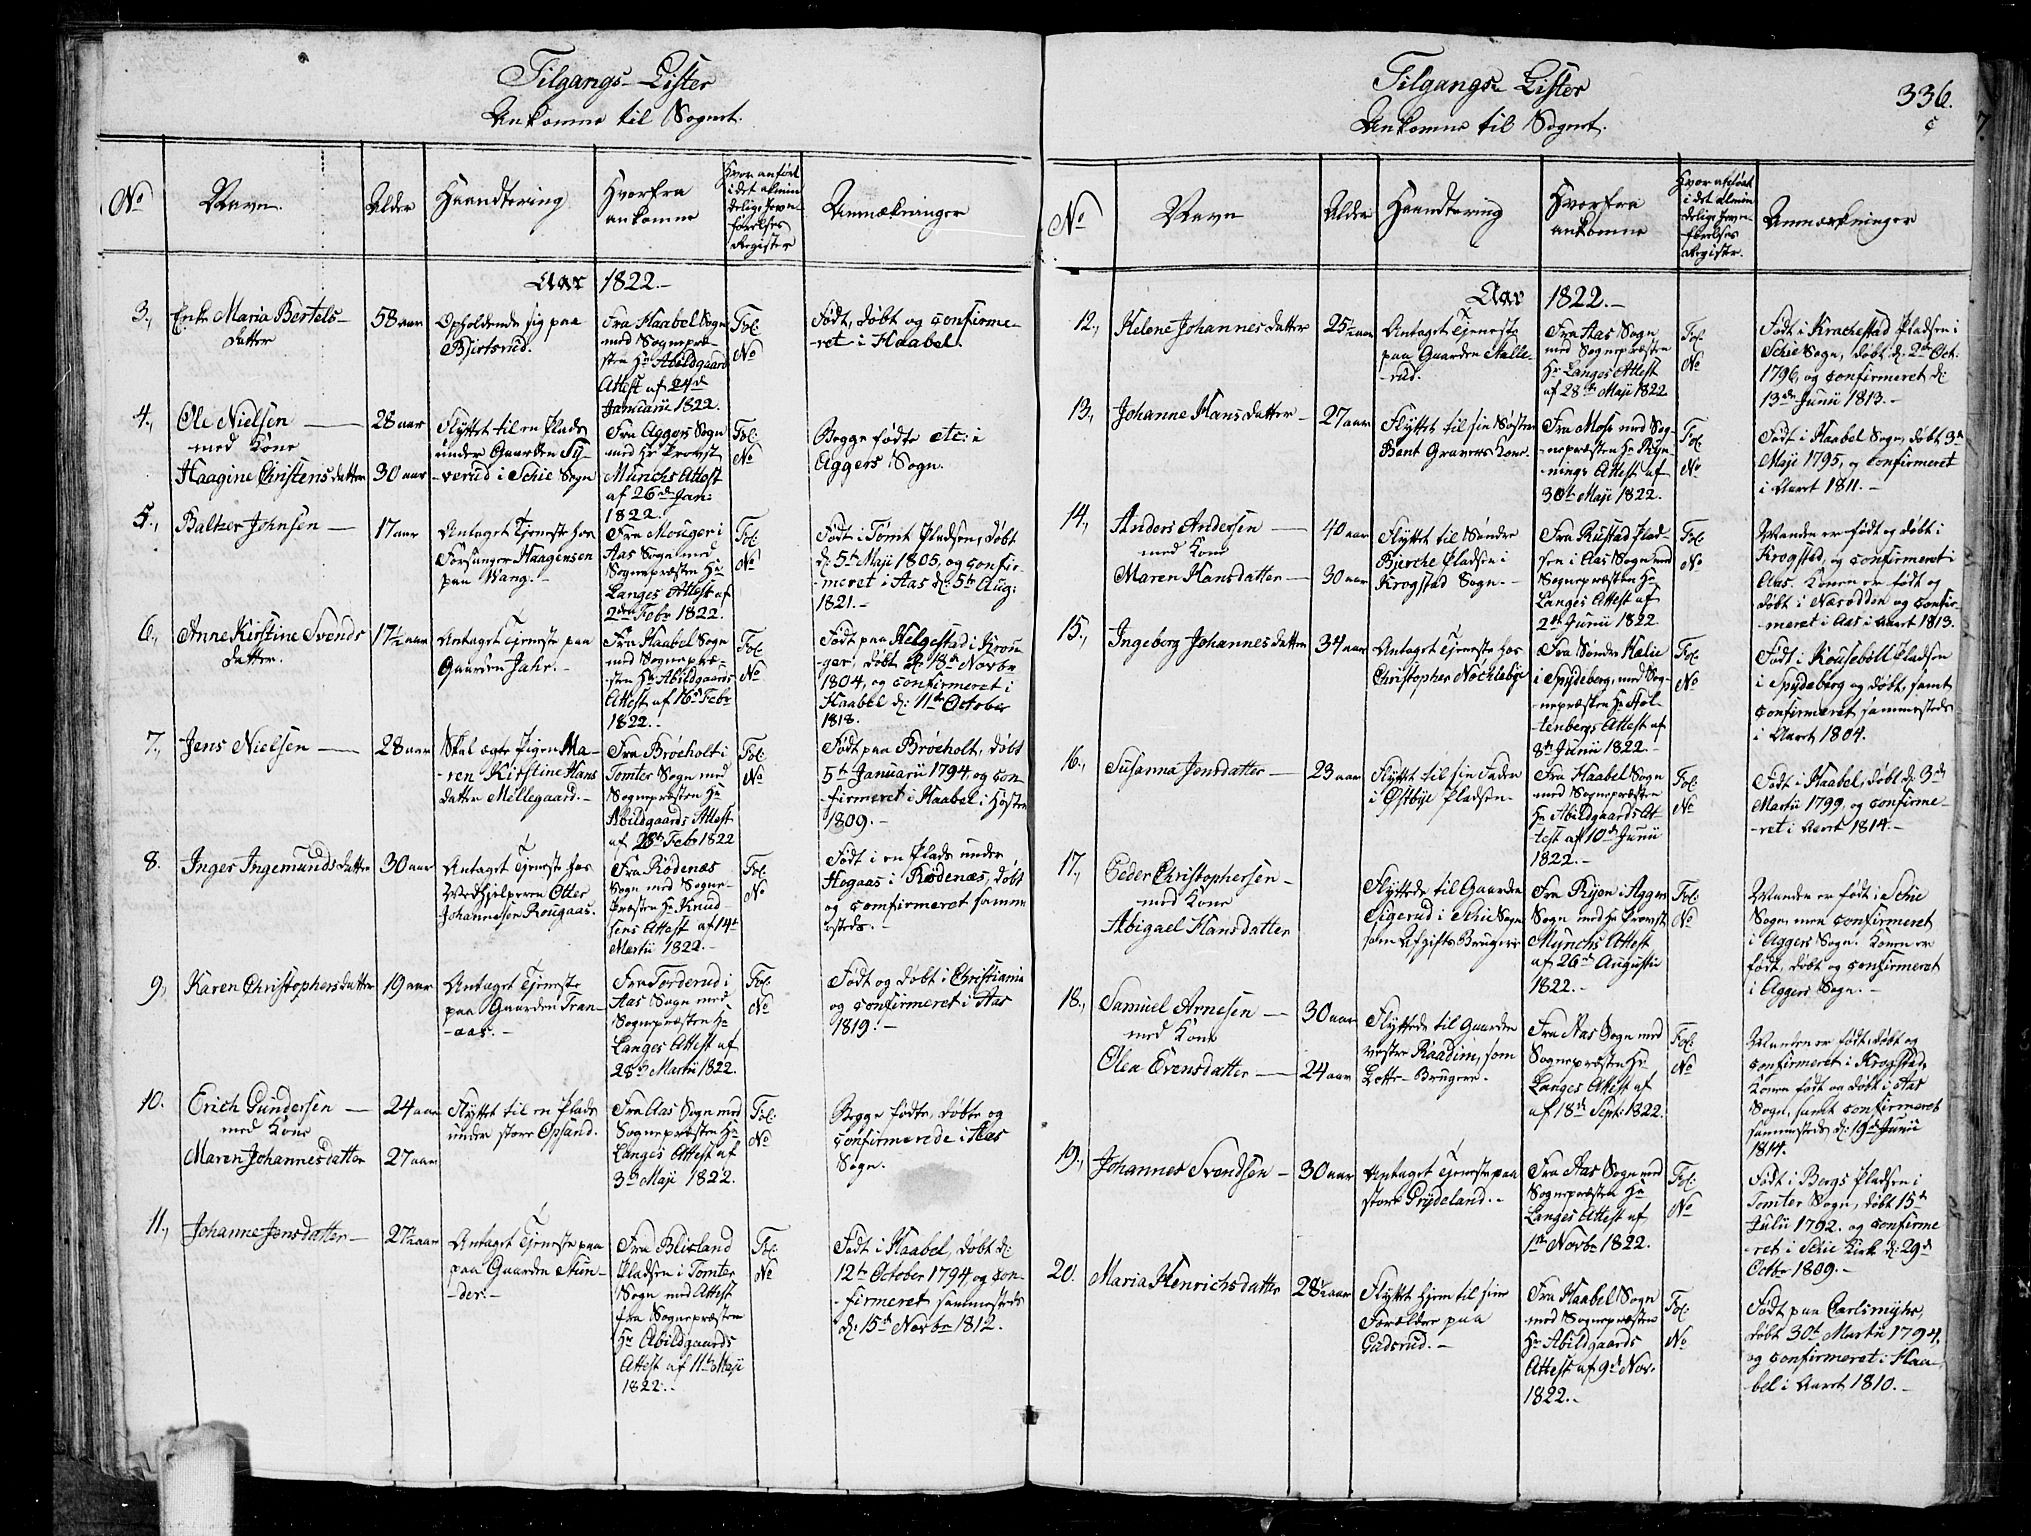 Tilgangs-Lister
Ankomne til Sognet.
No
Navn.
Alder
Haandtering
Hvorfra
ankomne
Hvor anført
i det almin
delige Jevn-
førelses
Register
Anmærkninger
Aar 1822.-
3.,
Enke Maria Bertels-
datter
58 aar
Opholdende sig paa
Bjertsrud.
Fra Haabel Sogn
med Sognepræ-
sten Hr Abildgaard
Attest af 24de
Januarii 1822.
Fol.
No
Født, døbt og confirme-
-ret i Haabel.
4.,
Ole Nielsen
med Kone
Haagine Christensdatter
28 aar
30 aar
Flyttet til en Plads
under Gaarden Sy-
-verud i Schie Sogn
Fra Aggers Sogn
med Hr Provst
Münchs Attest
af 26de Jan:
1822.
Fol.
No
Begge fødte etc: i
Aggers Sogn.
5.,
Baltzer Johnsen
17 aar
Antaget Tjeneste hos
Forsanger Haagensen
paa Vang.-
Fra Mouger i
Aas Sogn med
Sognepræsten Hr
Langes Attest af
2den Febr 1822.
Fol.
No
Født i Tømt Pladsen, døbt
d: 5te Maji 1805, og confir-
-meret i Aas d: 5te Aug:
1821.-
6.,
Anne Kirstine Svends
datter.
17½ aar
Antaget Tjeneste paa
Gaarden Jahr.-
Fra Haabel Sogn
med Sognepræ-
-sten Hr Abildgaards
Attest af 16de Febr
1822.-
Fol.
No
Født paa Helgestad i Krou-
ger, døbt d: 18de Novbr
1804, og confirmeret i
Haabel d: 11te October
1818.
7.,
Jens Nielsen
28 aar
Skal ægte Pigen Ma-
ren Kirstine Hans
datter Mellegaard.-
Fra Brøcholt i
Tomter Sogn med
Sognepræsten Hr
Abildgaards Attest
af 28de Febr 1822
Fol.
No
Født paa Brøcholt, døbt
5te Januarii 1794, og con-
firmeret i Haabel i Høsten
1809.-
8.
Inger Ingemundsdatter
30 aar
Antaget Tjeneste hos
Medhjelperen Otter
Johannesen Rougaas.
Fra Rødenæs
Sogn med Sogne-
Præsten Hr Knud-
sens Attest af 14de
Martii 1822.-
Fol.
No
Født i en Plads under
Hogaas i Rødenæs, døbt
og confirmeret samme
steds.-
9.,
Karen Christophersdatter
19 aar
Antaget Tjeneste
paa Gaarden Fran-
-aas.-
Fra Torderud i
Aas Sogn med
Sognepræsten Hr
Langes Attest af
28de Martii 1822.
Fol.
No
Født og døbt i Christiania
og confirmeret i Aas
1819.-
10.
Erich Gundersen
med Kone
Maren Johannesdatter
24 aar
27 aar
Flyttet til en Plads
under store Opsand.
Fra Aas Sogn med
Sognepræsten Hr
Langes Attest af
3de Maji 1822.
Fol.
No
Begge fødte, døbte og
confirmerede i Aas
Sogn.
11.,
Johanne Jensdatter-
27½ aar
Antaget Tjeneste paa
paa Gaarden Stun-
-der.-
Fra Blixland
Pladsen i Tomter
Sogn med Attest
fra Sognepræsten
Hr Abildgaards
Attest af 11te Maji
1822.-
Fol.
No
Født i Haabel, døbt d:
12te October 1794, og con-
-firmeret sammesteds
d: 15de Novbr 1812.
Tilgangs Lister
Ankomne til Sognet.
336.
c
No
Navn
Alder
Haandtering
Hvorfra
ankomne
Hvor anført
i det almin
delige Jevn-
førelses
Register.
Anmærkninger
Aar 1822.-
12.,
Helene Johannesdatter
25½ aar
Antaget Tjeneste
paa Gaarden Stalle-
-rud.
Fra Aas Sogn,
med Sognepræsten
Hr Langes Attest
af 28de Maji 1822
Fol.
No
Født i Krachestad Pladsen i
Schie Sogn, døbt d: 2de Oct.
1796, og confirmeret d:
13de Junii 1813.-
13.,
Johanne Hansdatter-
27 aar
Flyttet til sin Søster
Bent Gravers Kone.
Fra Moss med Sog-
-nepræsten Hr Ryn-
nings Attest af
30te Maji 1822.
Fol.
No
Født i Haabel Sogn, døbt 3de
Maji 1795, og confirmeret
i Aaret 1811.-
14.,
Anders Andersen
med Kone
Maren Hansdatter-
40 aar
30 aar
Flyttet til Søndre
Bjerche Pladsen i
Krogstad Sogn.-
Fra Rustad Plad-
sen i Aas Sogn med
Sognepræsten Hr
Langes Attest af
2den Junii 1822
Fol.
No
Manden er født og døbt i
Krogstad, og confirmeret i
Aas. Konen er født og
døbt i Næsodden og confir-
-meret i Aas i Aaret 1813.
15.,
Ingeborg Johannesdatter
34 aar
Antaget Tjeneste hos
Christopher Nøchlebye
Fra Søndre Hælie
i Spydeberg, med Sog-
-nepræsten Hr Hol-
tenbergs Attest af
8de Junii 1822.-
Fol.
No
Født i Kousebøll Pladsen
i Spydeberg og døbt, samt
confirmeret sammesteds
i Aaret 1804.
16.,
Susanna Jensdatter-
23 aar
Flyttet til sin Fader
i Østbye Pladsen.
Fra Haabel Sogn
med Sognepræsten
Hr Abildgaards At-
test af 10de Junii
1822.-
Fol.
No
Født i Haabel, døbt d: 3de
Martii 1799, og confirme-
-ret i Aaret 1814.-
17.,
Peder Christophersen-
med Kone
Abigael Hansdatter
Flyttede til Gaarden
Sigerud i Schie Sogn
som Afgifts Brugere
Fra Ryen i Aggers
Sogn med Hr Provst
Mynchs Attest
af 26de Augusti
1822.-
Fol.
No
Manden er født i Schie
Sogn, men confirmeret
i Aggers Sogn. Konen er
født, døbt og confirmeret
i Aggers Sogn.-
18.,
Samuel Arnesen
med Kone
Olea Evensdatter
30 aar
24 aar
Flyttede til Gaarden
vestre Raadim, som
Lotts-Brugere.
Fra Aas Sogn med
Sognepræsten Hr
Langes Attest af
af 18de Sept: 1822.
Fol.
No
Manden er født, døbt og
confirmeret i Krogstad,
Konen født og døbt i Aas
Sogn, samt confirmeret
sammesteds d: 19de Junii
1814.
19.,
Johannes Svendsen-
30 aar
Antaget Tjeneste paa
store Grydeland.-
Fra Aas Sogn med
Sognepræsten Hr
Langes Attest af
1ste Novbr 1822.
Fol.
No
Født i Bergs Pladsen i
Tomter Sogn, døbt 15de
Julii 1792. og confirme
-ret i Schie Kirk d: 29de
Octbr 1809.-
20.
Maria Henrichsdatter
28½ aar
Flyttet hjem til sine
Forældre paa
Gadsrud.-
Fra Haabel Sogn
med Sognepræsten
Hr Abildgaards
Attest af 9de Nov:
1822.-
Fol.
No
Født paa Carlsmyhr,
døbt 30te Martii 1794.
og confirmeret i Haa-
bel i Aaret 1810.-